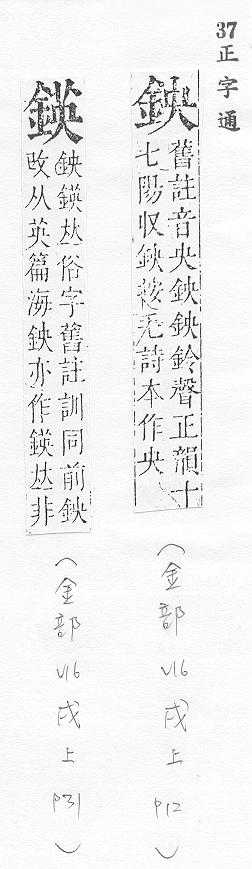 37正字通
鉠
舊註音央鉠鉠鈴聲正韻十
七陽収鉠
詩本作央
（金部 V16 戌上 P12）
鍈
鉠鍈𠀤俗字舊註訓同前鉠
改从英篇海鉠亦作鍈𠀤非
（金部 V16 戌上 P31）